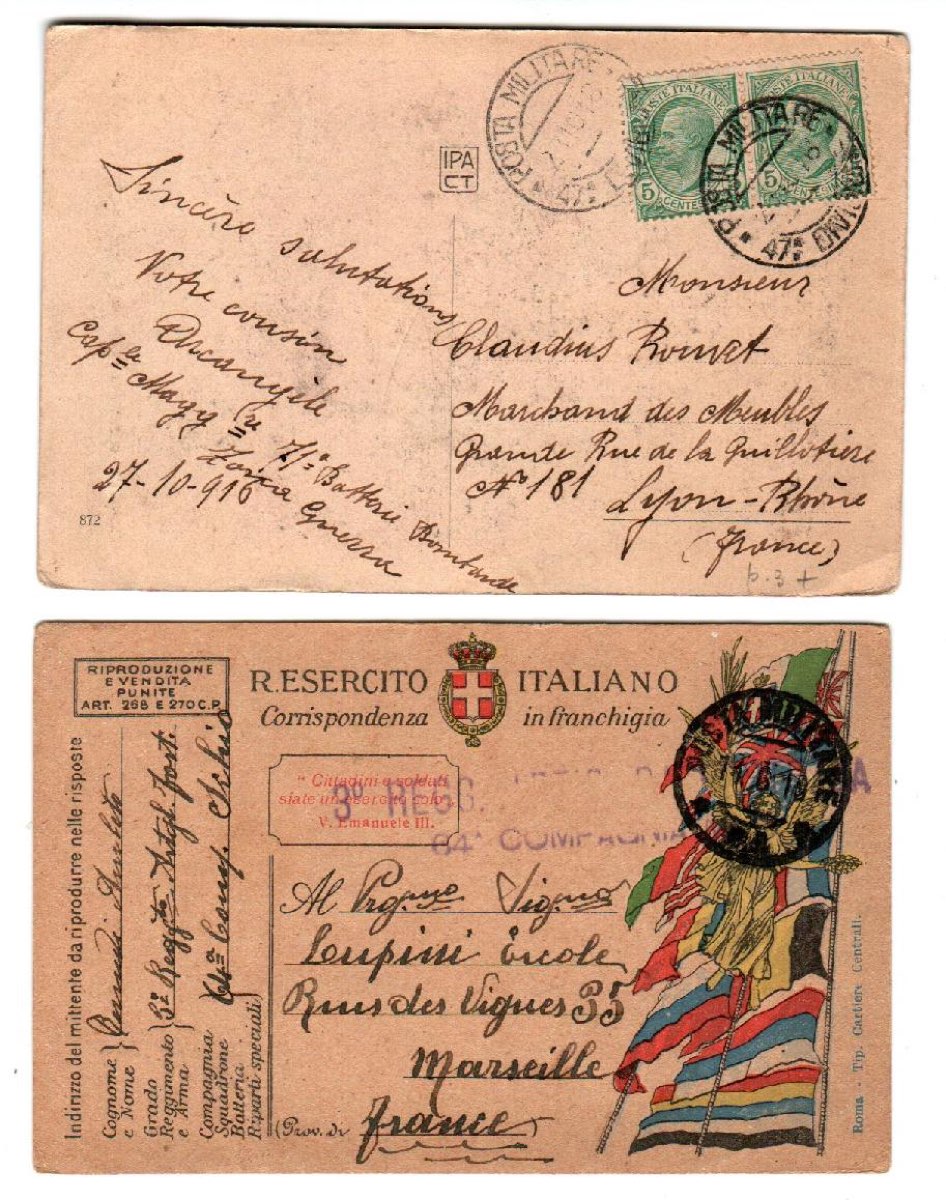 POSTA MILITARE
47ª
POSTE ITALIANE
5 CENTES
POSTE ITALIANE
5 CENTES
POSTA MILITARE
47ª DIVISIONE
IPA
CT
Sincère salutations
Votre cousin
Arcangèle
Capˡᵉ Maggʳᵉ 71ª Batteri Bombarde
Zona Guerra
27-10-916
872
Monsieur
Claudius
Marchand des Meubles
Grande Rue de la Guillotiere
Nº 181
Lyon-Rhône
(France)
RIPRODUZIONE
E VENDITA
PUNITE
ART. 268 E 270 C.P.
R. ESERCITO ITALIANO
Corrispondenza in franchigia
"Cittadini e soldati
siate un esercito solo„
V. Emanuele III.
3º REGG.
64ª COMPAGNIA
POSTA MILITARE
Indirizzo del mittente da riprodurre nelle risposte
Cognome
e Nome
Grado
Reggimento
e Arma
3º Reggᵗᵒ Artigl. Fort.
Compagnia
Squadrone
Batteria
Riparti speciali
64ª Comp. Schio
Al Preg.ᵐᵒ Sig.
Lupini Ercole
Rue des Vignes 35
Marseille
(Prov. di France
Roma - Tip. Cartiere Centrali.